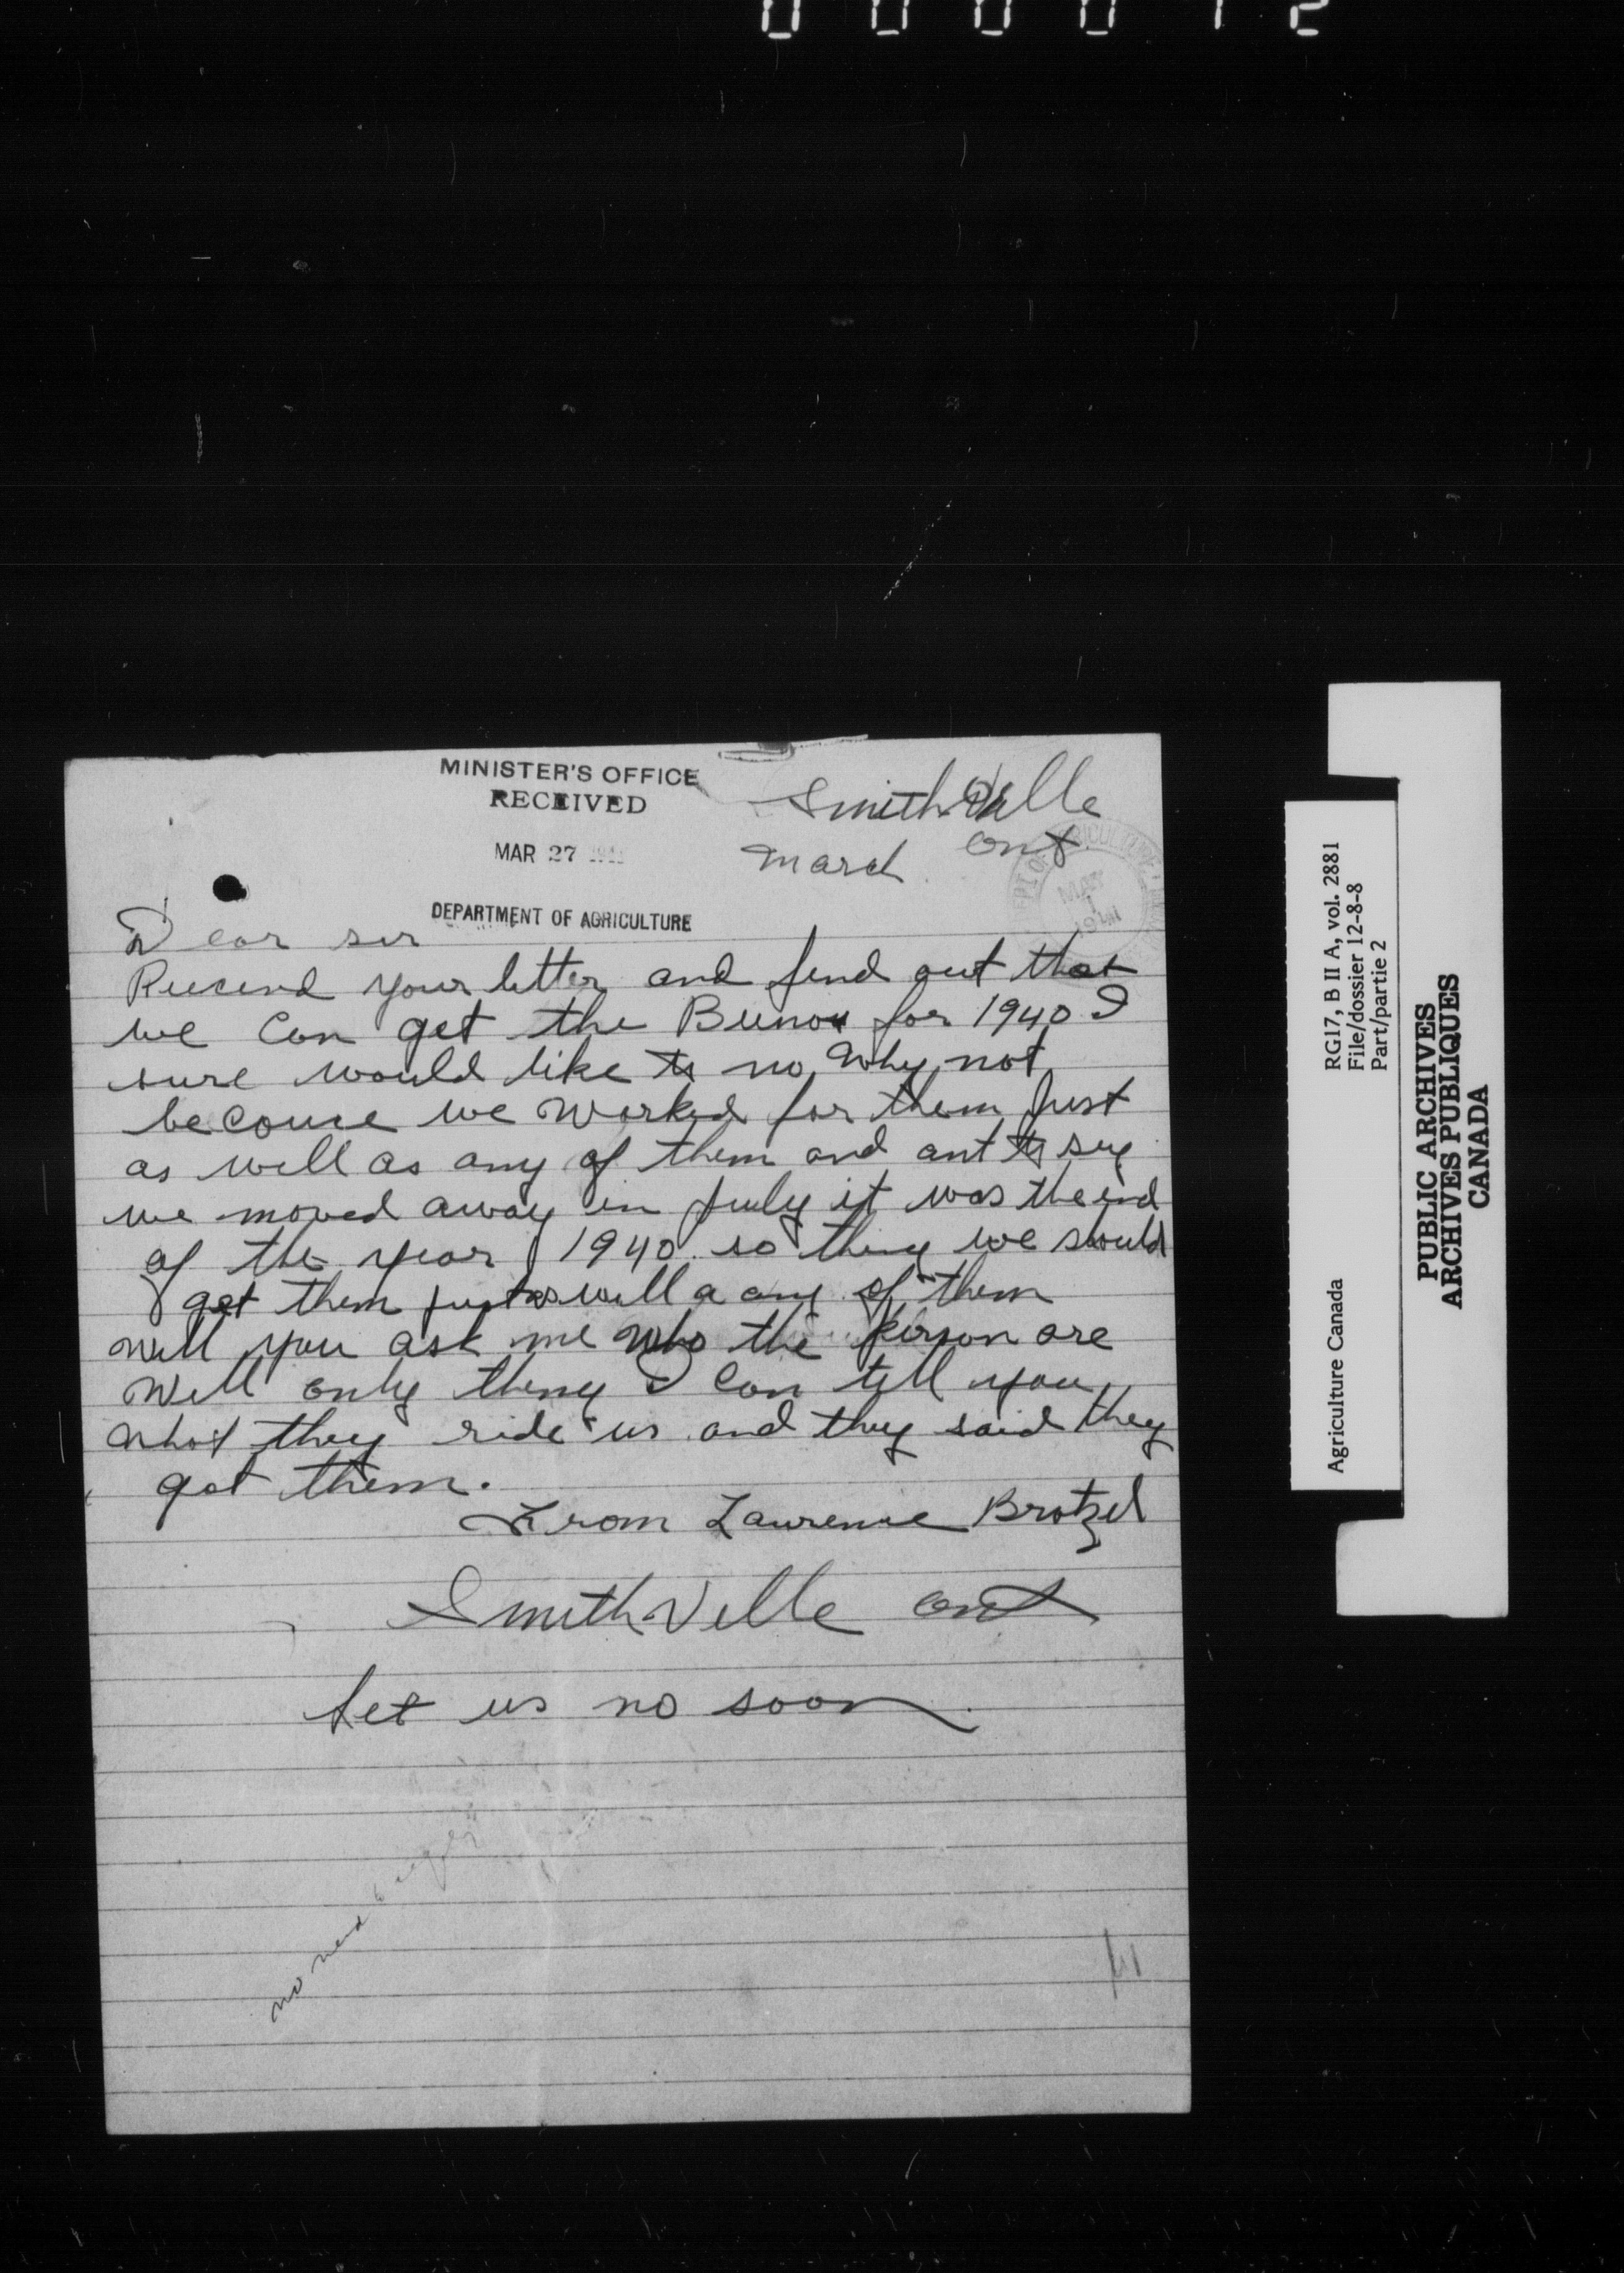 000012
MINISTER'S OFFICE
RECEIVED
MAR 27
DEPARTMENT OF AGRICULTURE
SmithVille
Ont
March
Dear sir
Recend your letter and find out that
we Can get the Bunou for 1940 I
sure would like to no Why not
becouse we Worked for them Just
as well as any of them and ant to sey
we moved away in July it was the end
of the year 1940 so thing we should
get them just as well a any of them
Will you ask me Who the person are
Well only thing I Can tell you
What they ride us and they said they
got them.
From Laurence Brotzel
SmithVille Ont
Let us no soon
no need to
RG17, B II A, vol. 2881
File/dossier 12-8-8
Part/partie 2
Agriculture Canada
PUBLIC ARCHIVES
ARCHIVES PUBLIQUES
CANADA